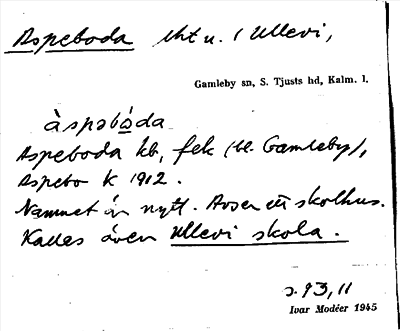 Aspeboda lht u. / Ullevi,
Gamleby sn, S. Tjusts hd, Kalm. l.
àspəbòda
Aspeboda kb, fek (bl. Gamleby),
Aspebo K 1912.
Namnet är nytt. Avser ett skolhus.
Kallas även Ullevi skola.
s. 93, 11
Ivar Modéer 1945